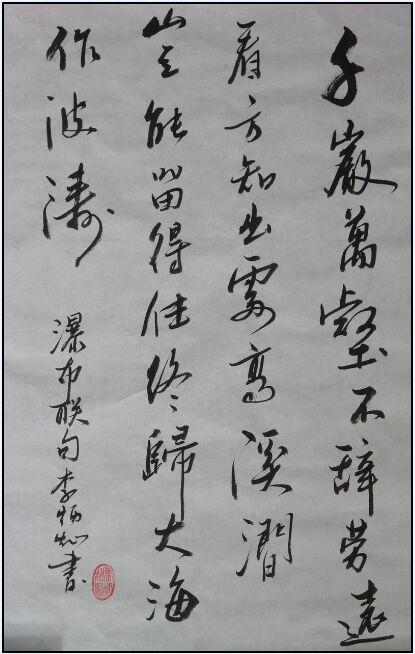 千巖萬壑不辭勞遠
看方知出處高溪澗
豈能留得住終歸大海
作波濤
瀑布联句李炳書